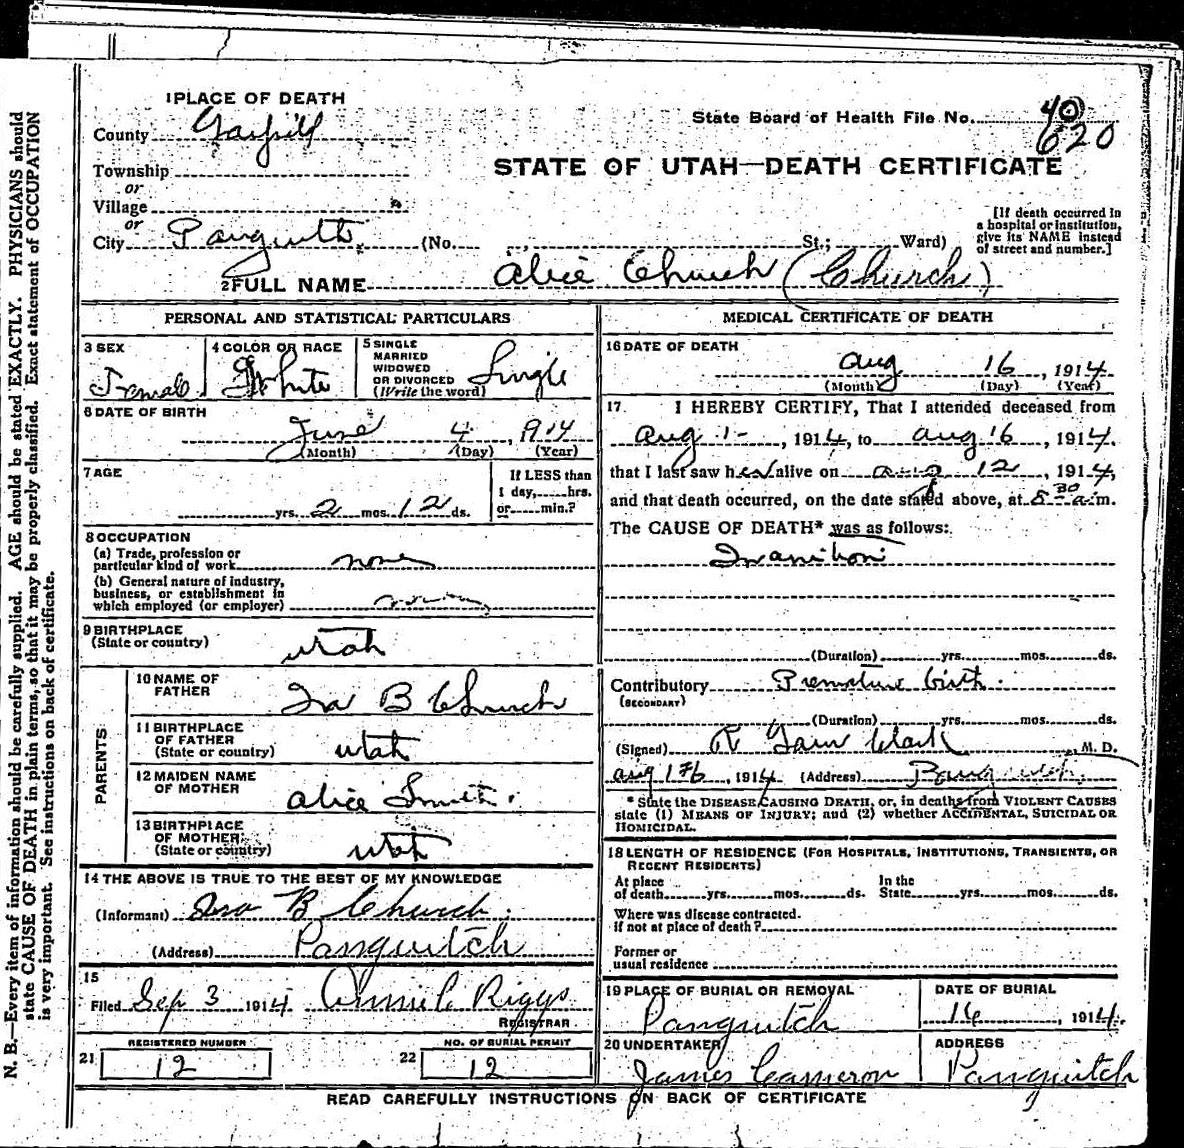 1 PLACE OF DEATH
County Garfield
State Board of Health File No. 40
620
Township
or
Village
or
City Panguitch (No. St.; Ward)
STATE OF UTAH—DEATH CERTIFICATE
[If death occurred in
a hospital or institution,
give its NAME instead
of street and number.]
2 FULL NAME Alice Church (Church)
PERSONAL AND STATISTICAL PARTICULARS
3 SEX
Female
4 COLOR OR RACE
White
5 SINGLE
MARRIED
WIDOWED
OR DIVORCED
(Write the word)
Single
6 DATE OF BIRTH
June 4, 1914
(Month) (Day) (Year)
7 AGE
yrs. 2 mos. 12 ds.
If LESS than
1 day, hrs.
or min.?
8 OCCUPATION
(a) Trade, profession or
particular kind of work none
(b) General nature of industry,
business, or establishment in
which employed (or employer)
9 BIRTHPLACE
(State or country)
Utah
PARENTS
10 NAME OF
FATHER
Ira B Church
11 BIRTHPLACE
OF FATHER
(State or country)
Utah
12 MAIDEN NAME
OF MOTHER
Alice Smith.
13 BIRTHPLACE
OF MOTHER
(State or country)
Utah
14 THE ABOVE IS TRUE TO THE BEST OF MY KNOWLEDGE
(Informant) Ira B Church.
(Address) Panguitch
15
Filed Sep 3 1914. Annie C Riggs
REGISTRAR
REGISTERED NUMBER
21 12
NO. OF BURIAL PERMIT
22 12
MEDICAL CERTIFICATE OF DEATH
16 DATE OF DEATH
Aug 16, 1914
(Month) (Day) (Year)
17. I HEREBY CERTIFY, That I attended deceased from
Aug 1-, 1914, to Aug 16, 1914.
that I last saw her alive on Aug 12, 1914,
and that death occurred, on the date stated above, at 8-30 a.m.
The CAUSE OF DEATH* was as follows:
Inanition
(Duration) yrs. mos. ds.
Contributory Premature birth.
(SECONDARY)
(Duration) yrs. mos. ds.
(Signed) R Garn Clark, M. D.
Aug 176, 1914. (Address) Panguitch.
* State the DISEASE CAUSING DEATH, or, in deaths from VIOLENT CAUSES
state (1) MEANS OF INJURY; and (2) whether ACCIDENTAL, SUICIDAL OR
HOMICIDAL.
18 LENGTH OF RESIDENCE (FOR HOSPITALS, INSTITUTIONS, TRANSIENTS, OR
RECENT RESIDENTS)
At place
of death yrs. mos. ds.
In the
State yrs. mos. ds.
Where was disease contracted.
if not at place of death?
Former or
usual residence
19 PLACE OF BURIAL OR REMOVAL
Panguitch
DATE OF BURIAL
16, 1914.
20 UNDERTAKER
James Cameron
ADDRESS
Panguitch
READ CAREFULLY INSTRUCTIONS ON BACK OF CERTIFICATE
N. B.—Every item of information should be carefully supplied. AGE should be stated EXACTLY. PHYSICIANS should
state CAUSE OF DEATH in plain terms, so that it may be properly classified. Exact statement of OCCUPATION
is very important. See instructions on back of certificate.